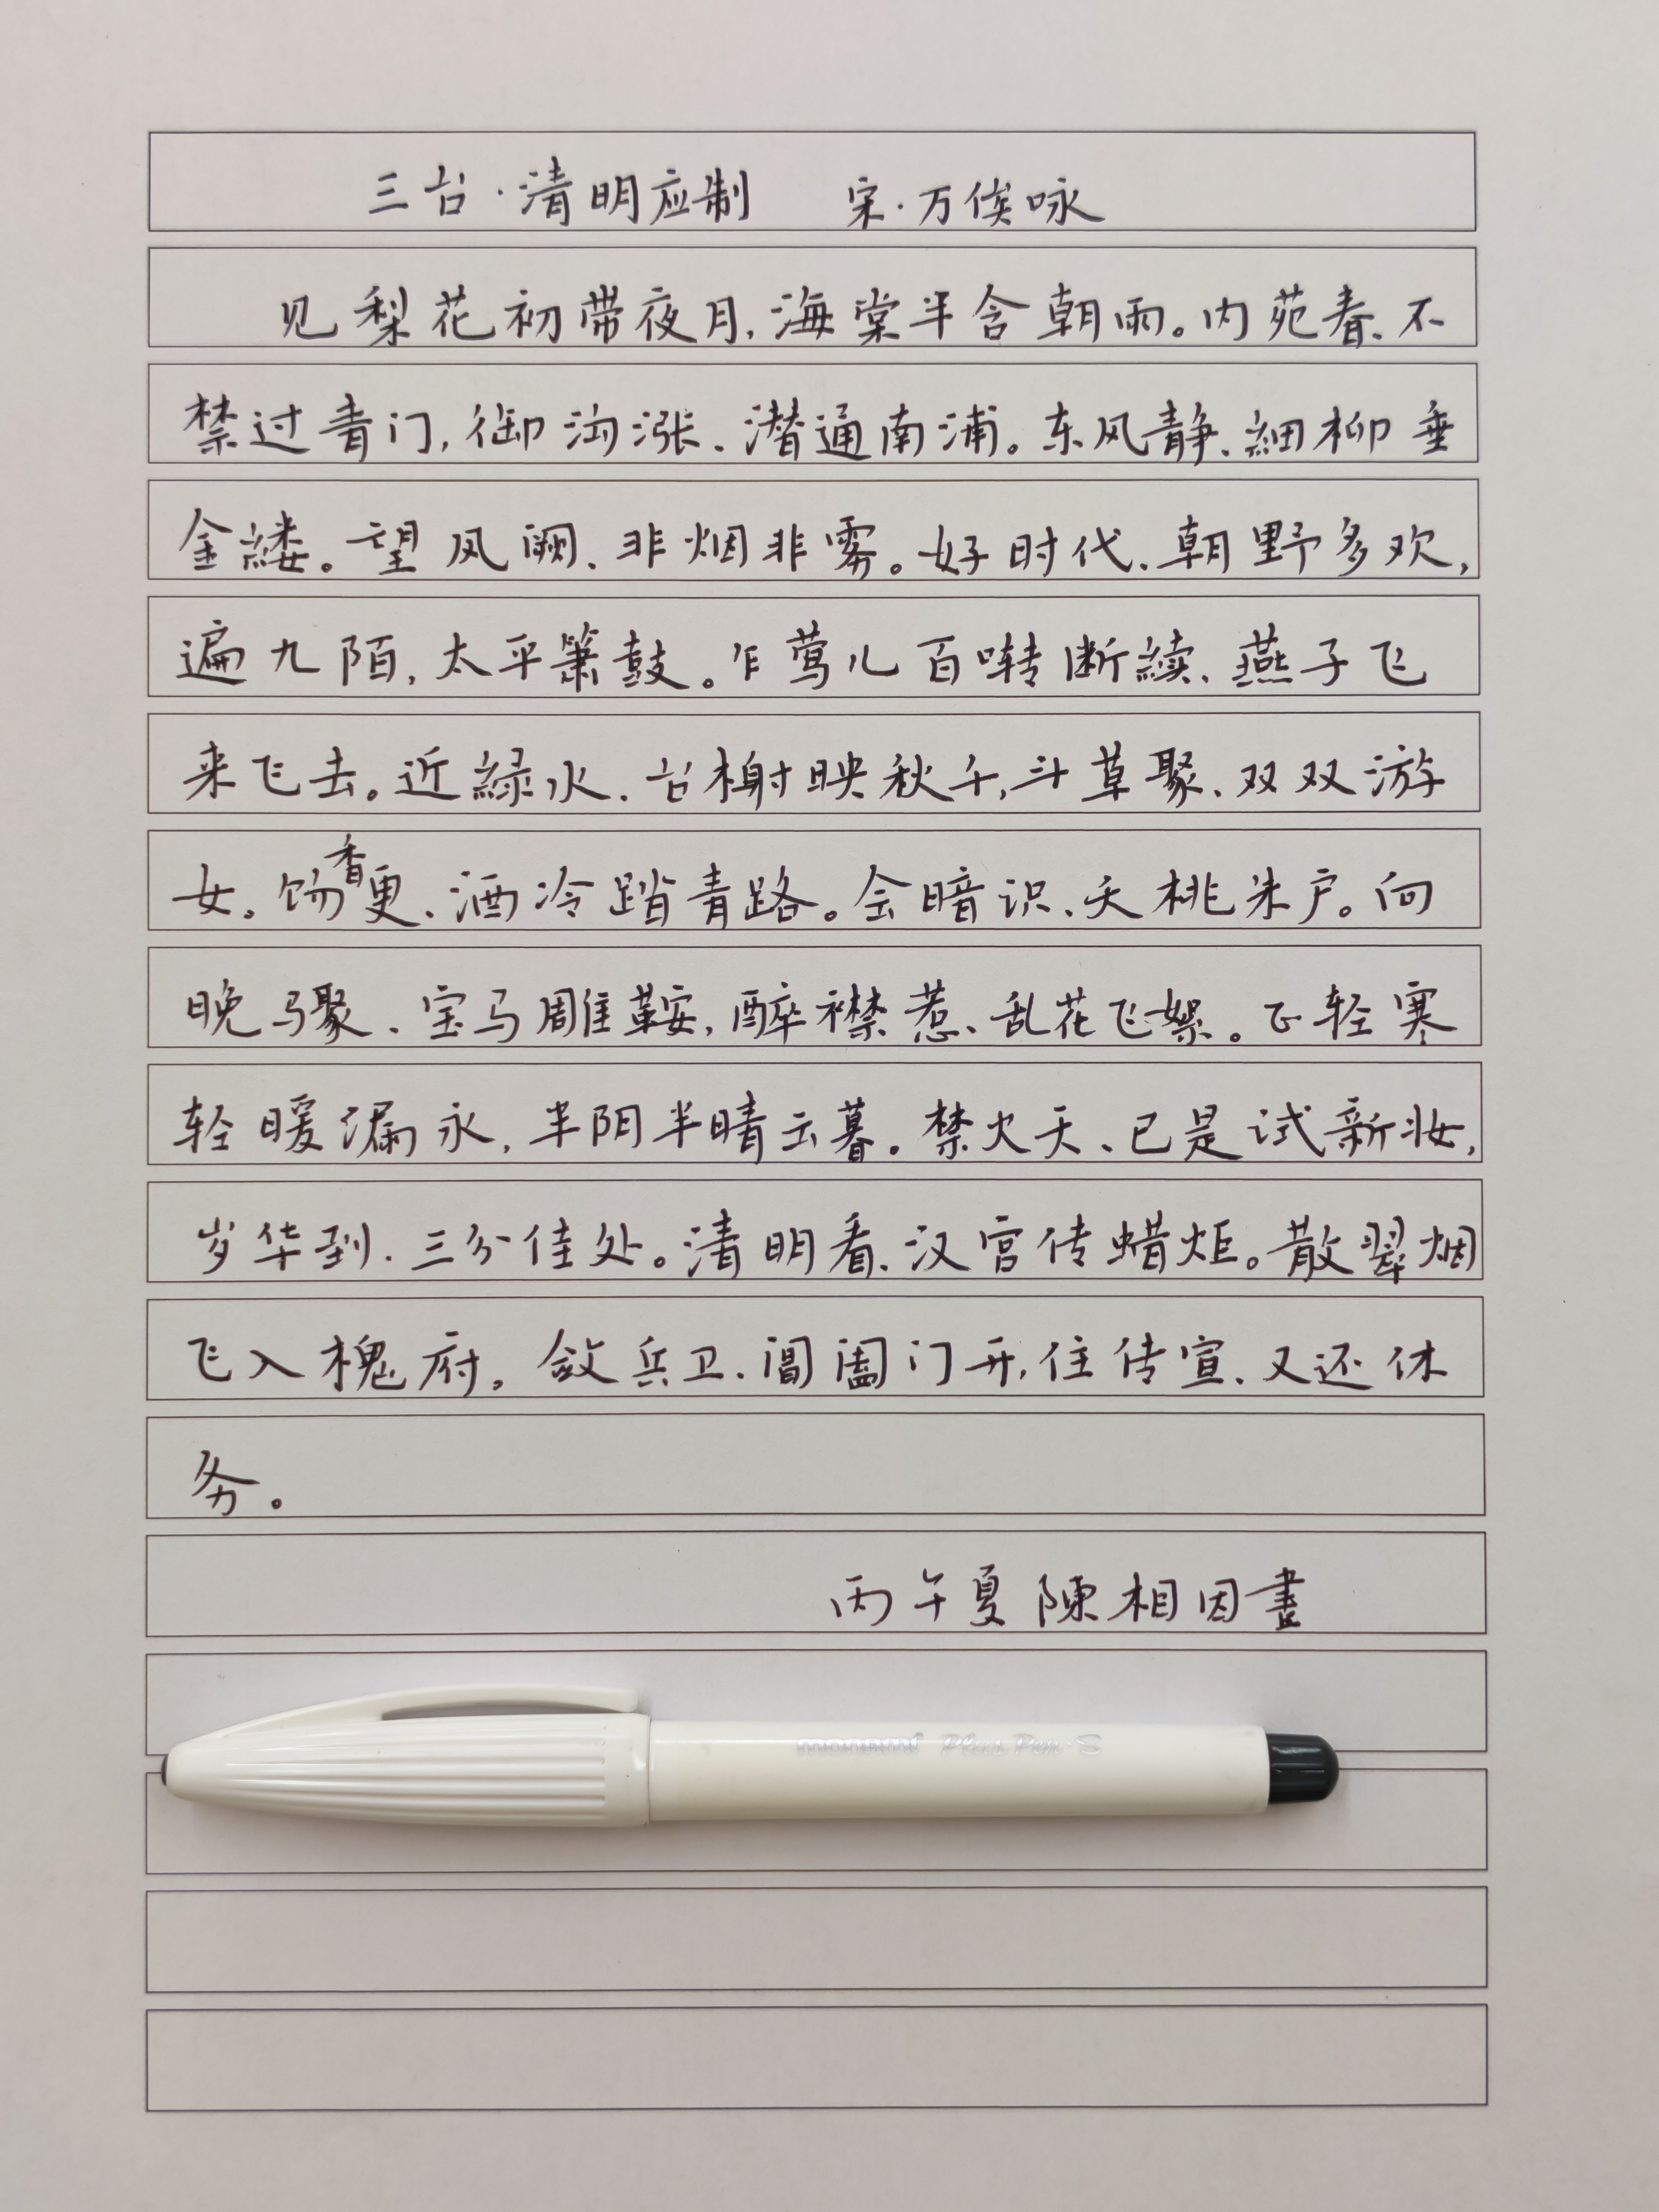 三台·清明应制 宋·万俟咏
见梨花初带夜月,海棠半含朝雨。内苑春、不
禁过青门,御沟涨、潜通南浦。东风静、細柳垂
金縷。望凤阙、非烟非雾。好时代、朝野多欢,
遍九陌,太平箫鼓。乍莺儿百啭断續、燕子飞
来飞去。近緑水、台榭映秋千,斗草聚、双双游
女。饧香更、酒冷踏青路。会暗识、夭桃朱户。向
晚骤、宝马雕鞍,醉襟惹、乱花飞絮。正轻寒
轻暖漏永,半阴半晴云暮。禁火天、已是试新妆,
岁华到、三分佳处。清明看、汉宫传蜡炬。散翠烟
飞入槐府。敛兵卫、阊阖门开,住传宣、又还休
务。
丙午夏陳相因書
monami Plus Pen-S